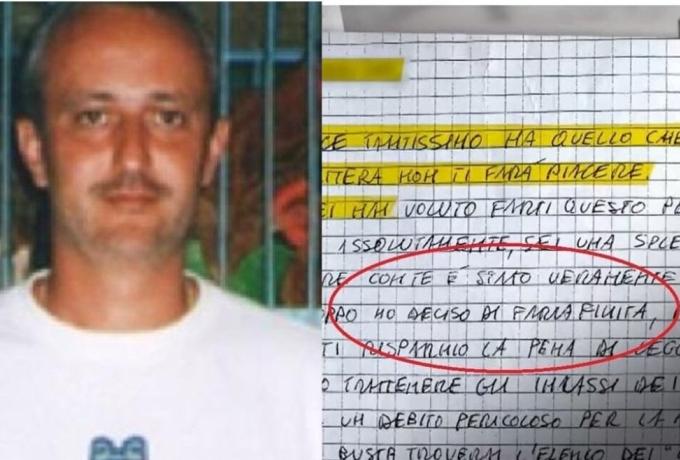 CE TANTISSIMO HA QUELLO CHE
TTERA NON TI FARÀ PIACERE.
EI HAI VOLUTO FARMI QUESTO
ASSOLUTAMENTE, SEI UNA SPLE
RE CON TE È STATO VERAMENTE
HO DECISO DI FARLA FINITA,
TI RISPARMIO LA PENA DI LEGG
O TRATTENERE GLI INCASSI DEI
UN DEBITO PERICOLOSO PER LA
BUSTA TROVERAI L'ELENCO DEI